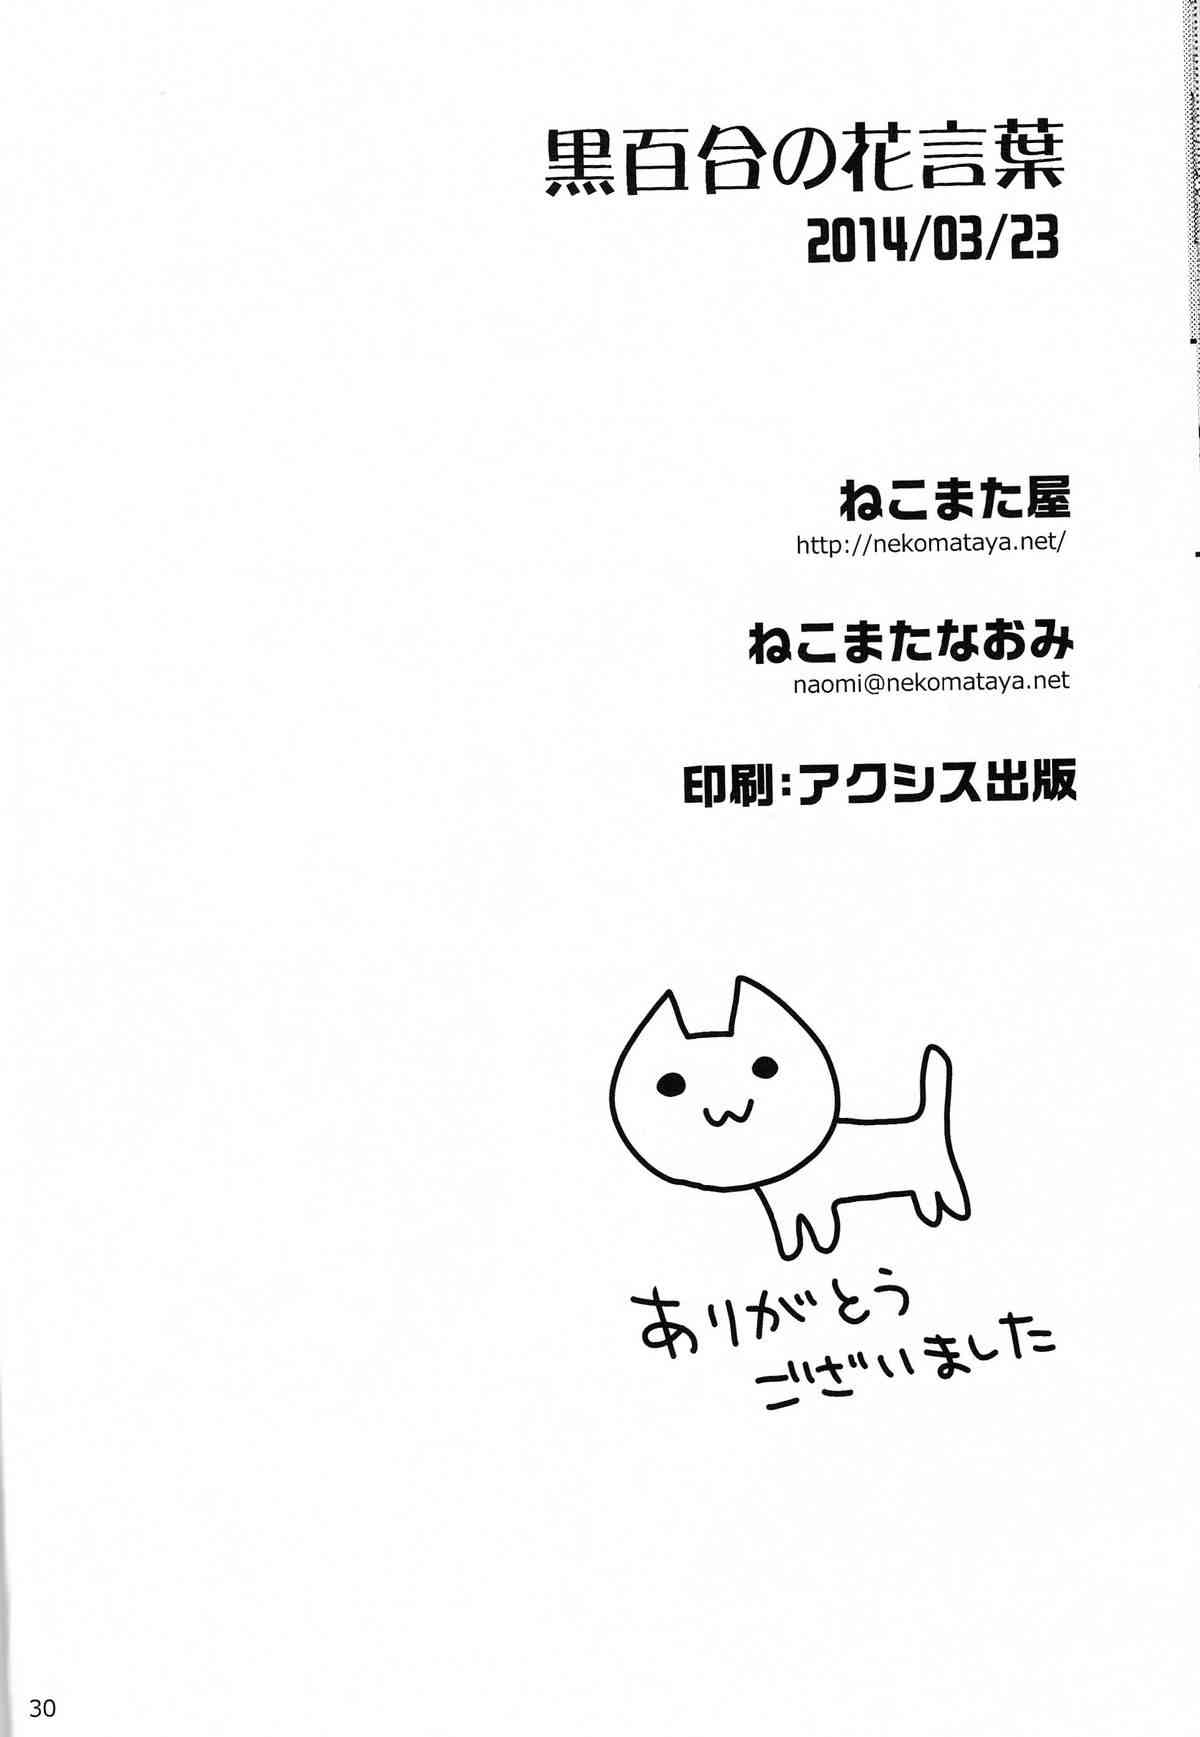 黒百合の花言葉
2014/03/23
ねこまた屋
http://nekomataya.net/
ねこまたなおみ
naomi@nekomataya.net
印刷:アクシス出版
ありがとう
ございました
30